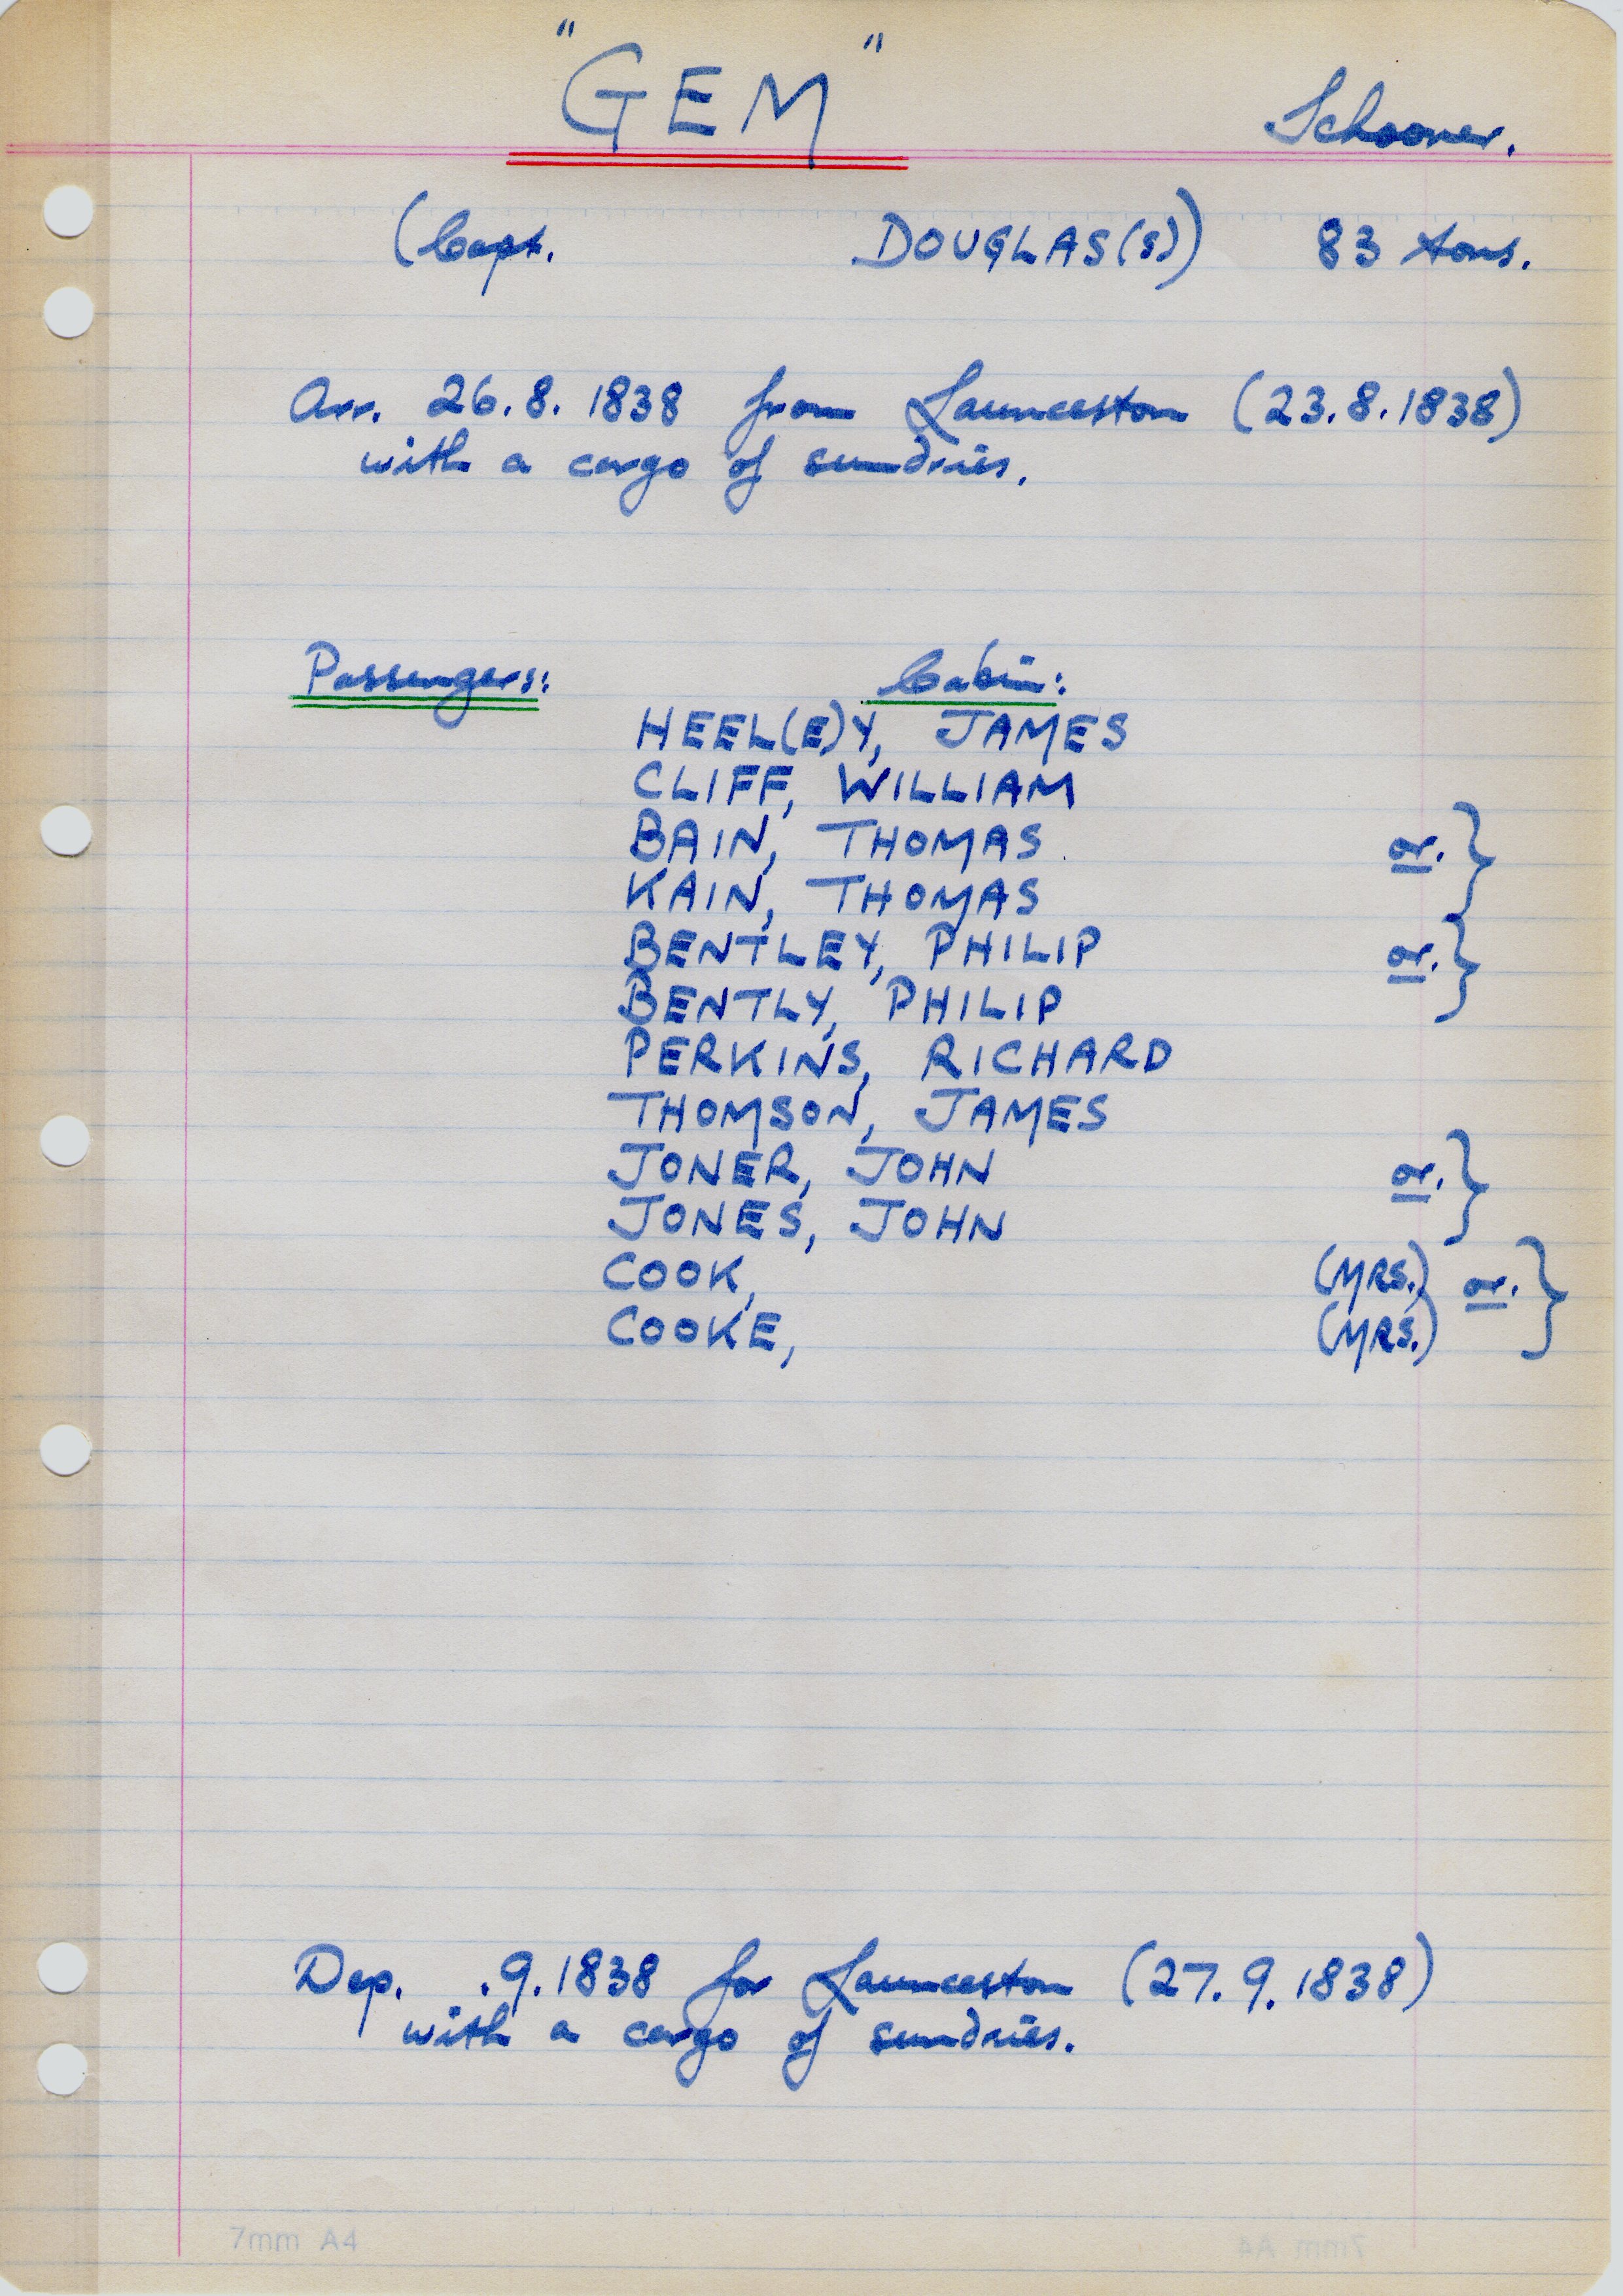 "GEM" Schooner.
(Capt. DOUGLAS(S)) 83 tons.
Arr. 26.8.1838 from Launceston (23.8.1838)
with a cargo of sundries.
Passengers: Cabin:
HEEL(E)Y, JAMES
CLIFF, WILLIAM
BAIN, THOMAS or. }
KAIN, THOMAS
BENTLEY, PHILIP or. }
BENTLY, PHILIP
PERKINS, RICHARD
THOMSON, JAMES
JONER, JOHN or. }
JONES, JOHN
COOK, (MRS.) or. }
COOKE, (MRS.)
Dep. .9.1838 for Launceston (27.9.1838)
with a cargo of sundries.
7mm A4 7mm A4